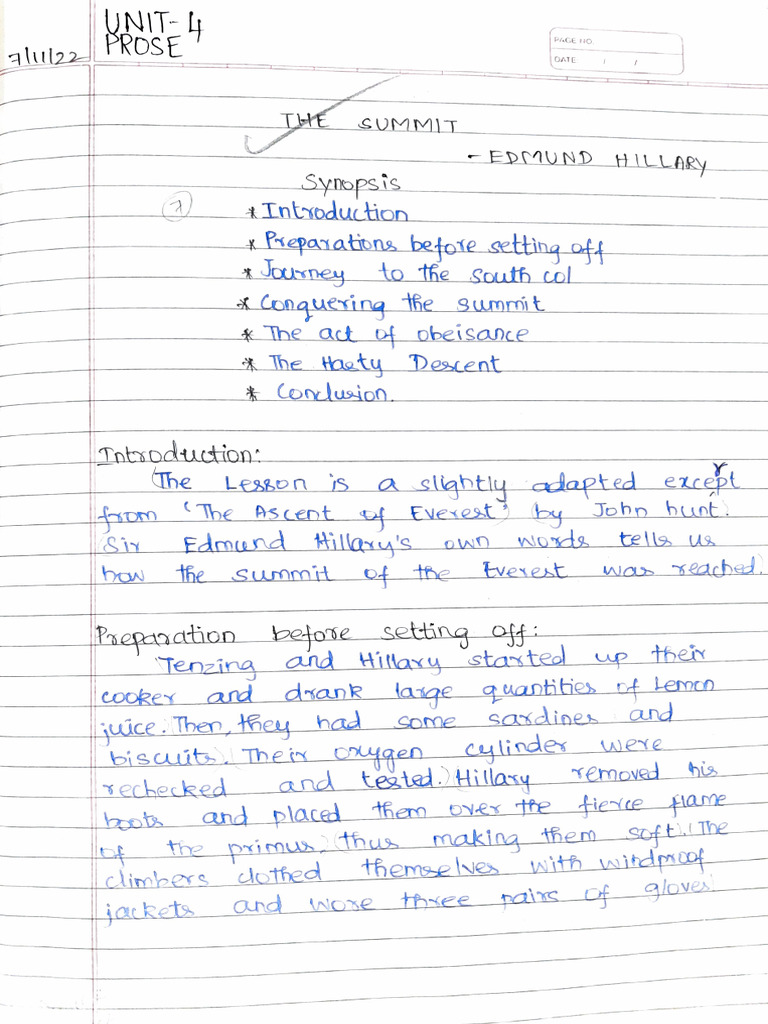 UNIT-4
PROSE
7/11/22
PAGE NO.
DATE / /
THE SUMMIT
- EDMUND HILLARY
Synopsis
7
* Introduction
* Preparations before setting off
* Journey to the south col
* Conquering the summit
* The act of obeisance
* The Hasty Descent
* Conclusion.
Introduction:
(The Lesson is a slightly adapted excerpt
from 'The Ascent of Everest' by John hunt.
(Sir Edmund Hillary's own words tells us
how the summit of the Everest was reached.)
Preparation before setting off:
Tenzing and Hillary started up their
cooker and drank large quantities of Lemon
juice. Then, they had some sardines and
biscuits. (Their oxygen cylinder were
rechecked and tested.) Hillary removed his
boots and placed them over the fierce flame
of the primus, (thus making them soft). (The
climbers clothed themselves with windproof
jackets and wore three pairs of gloves.